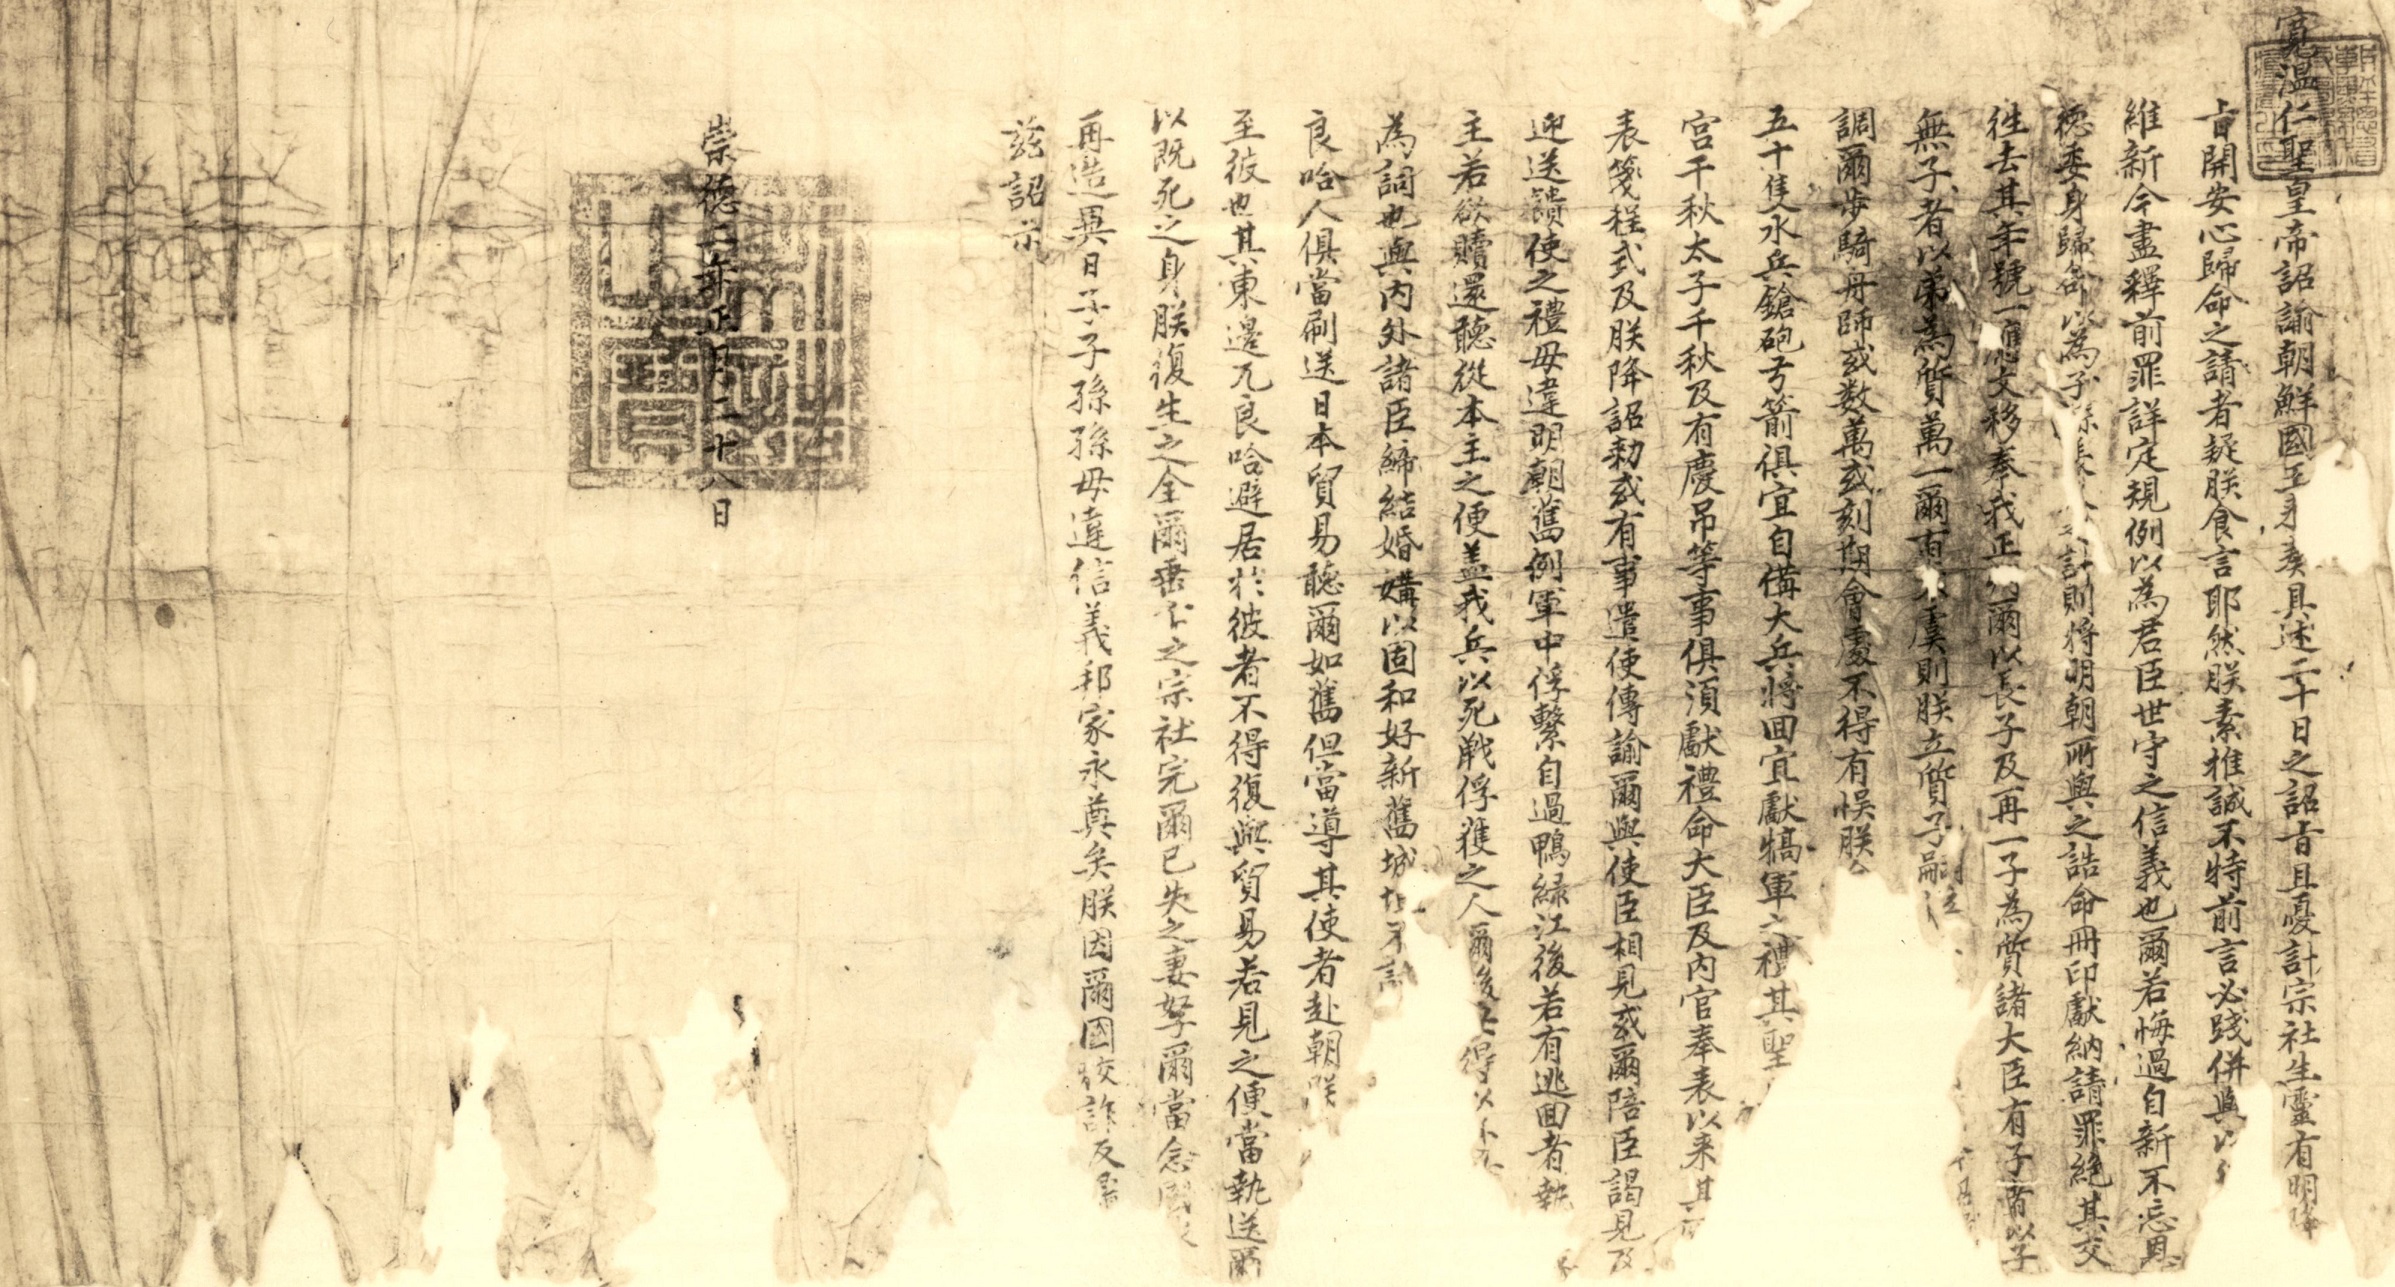 寬溫仁聖皇帝詔諭朝鮮國王來奏具述二十日之詔旨且憂計宗社生靈有明降
旨開安心歸命之請者疑朕食言耶然朕素推誠不特前言必踐併與以
維新今盡釋前罪詳定規例以為君臣世守之信義也爾若悔過自新不忘恩
德委身歸命以為子孫長計則將明朝所與之誥命冊印獻納請罪絶其交
徃去其年號一應文移奉我正爾以長子及再一子為質諸大臣有子者以子
無子者以弟為質萬一爾有不虞則朕立質子嗣位
調爾步騎舟師或数萬或刻期會處不得有悞朕
五十隻水兵鎗砲弓箭俱宜自俻大兵將回宜獻犒軍之禮其聖
宫千秋太子千秋及有慶吊等事俱須獻禮命大臣及内官奉表以来其
表箋程式及朕降詔勑或有事遣使傳諭爾與使臣相見或爾陪臣謁見及
迎送饋使之禮毋違明朝舊例軍中俘繫自過鴨緑江後若有逃回者執
主若欲贖還聽從本主之便盖我兵以死戰俘獲之人爾後不得以不
為詞也與内外諸臣締結婚媾以固和好新舊城
良哈人俱當刷送日本貿易聽爾如舊但當導其使者赴朝朕
至彼也其東邊兀良哈避居扵彼者不得復與貿易若見之便當執送爾
以既死之身朕復生之全爾垂亡之宗社完爾已失之妻孥爾當念國
再造異日子子孫孫毋違信義邦家永奠矣朕因爾國狡詐反
玆詔示
崇德二年正月二十八日